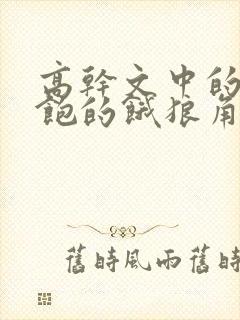 高幹文中的
飽的餓狼角
舊時風雨舊時